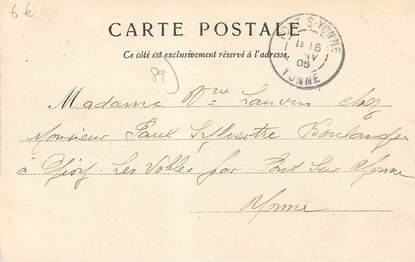 6 €
CARTE POSTALE
Ce côté est exclusivement réservé à l'adresse.
S-YONNE
16
05
YONNE
89
Madame Vve chez
Monsieur Paul Sylvestre Boulanger
à Gisy les Nobles par Pont sur Yonne
Yonne